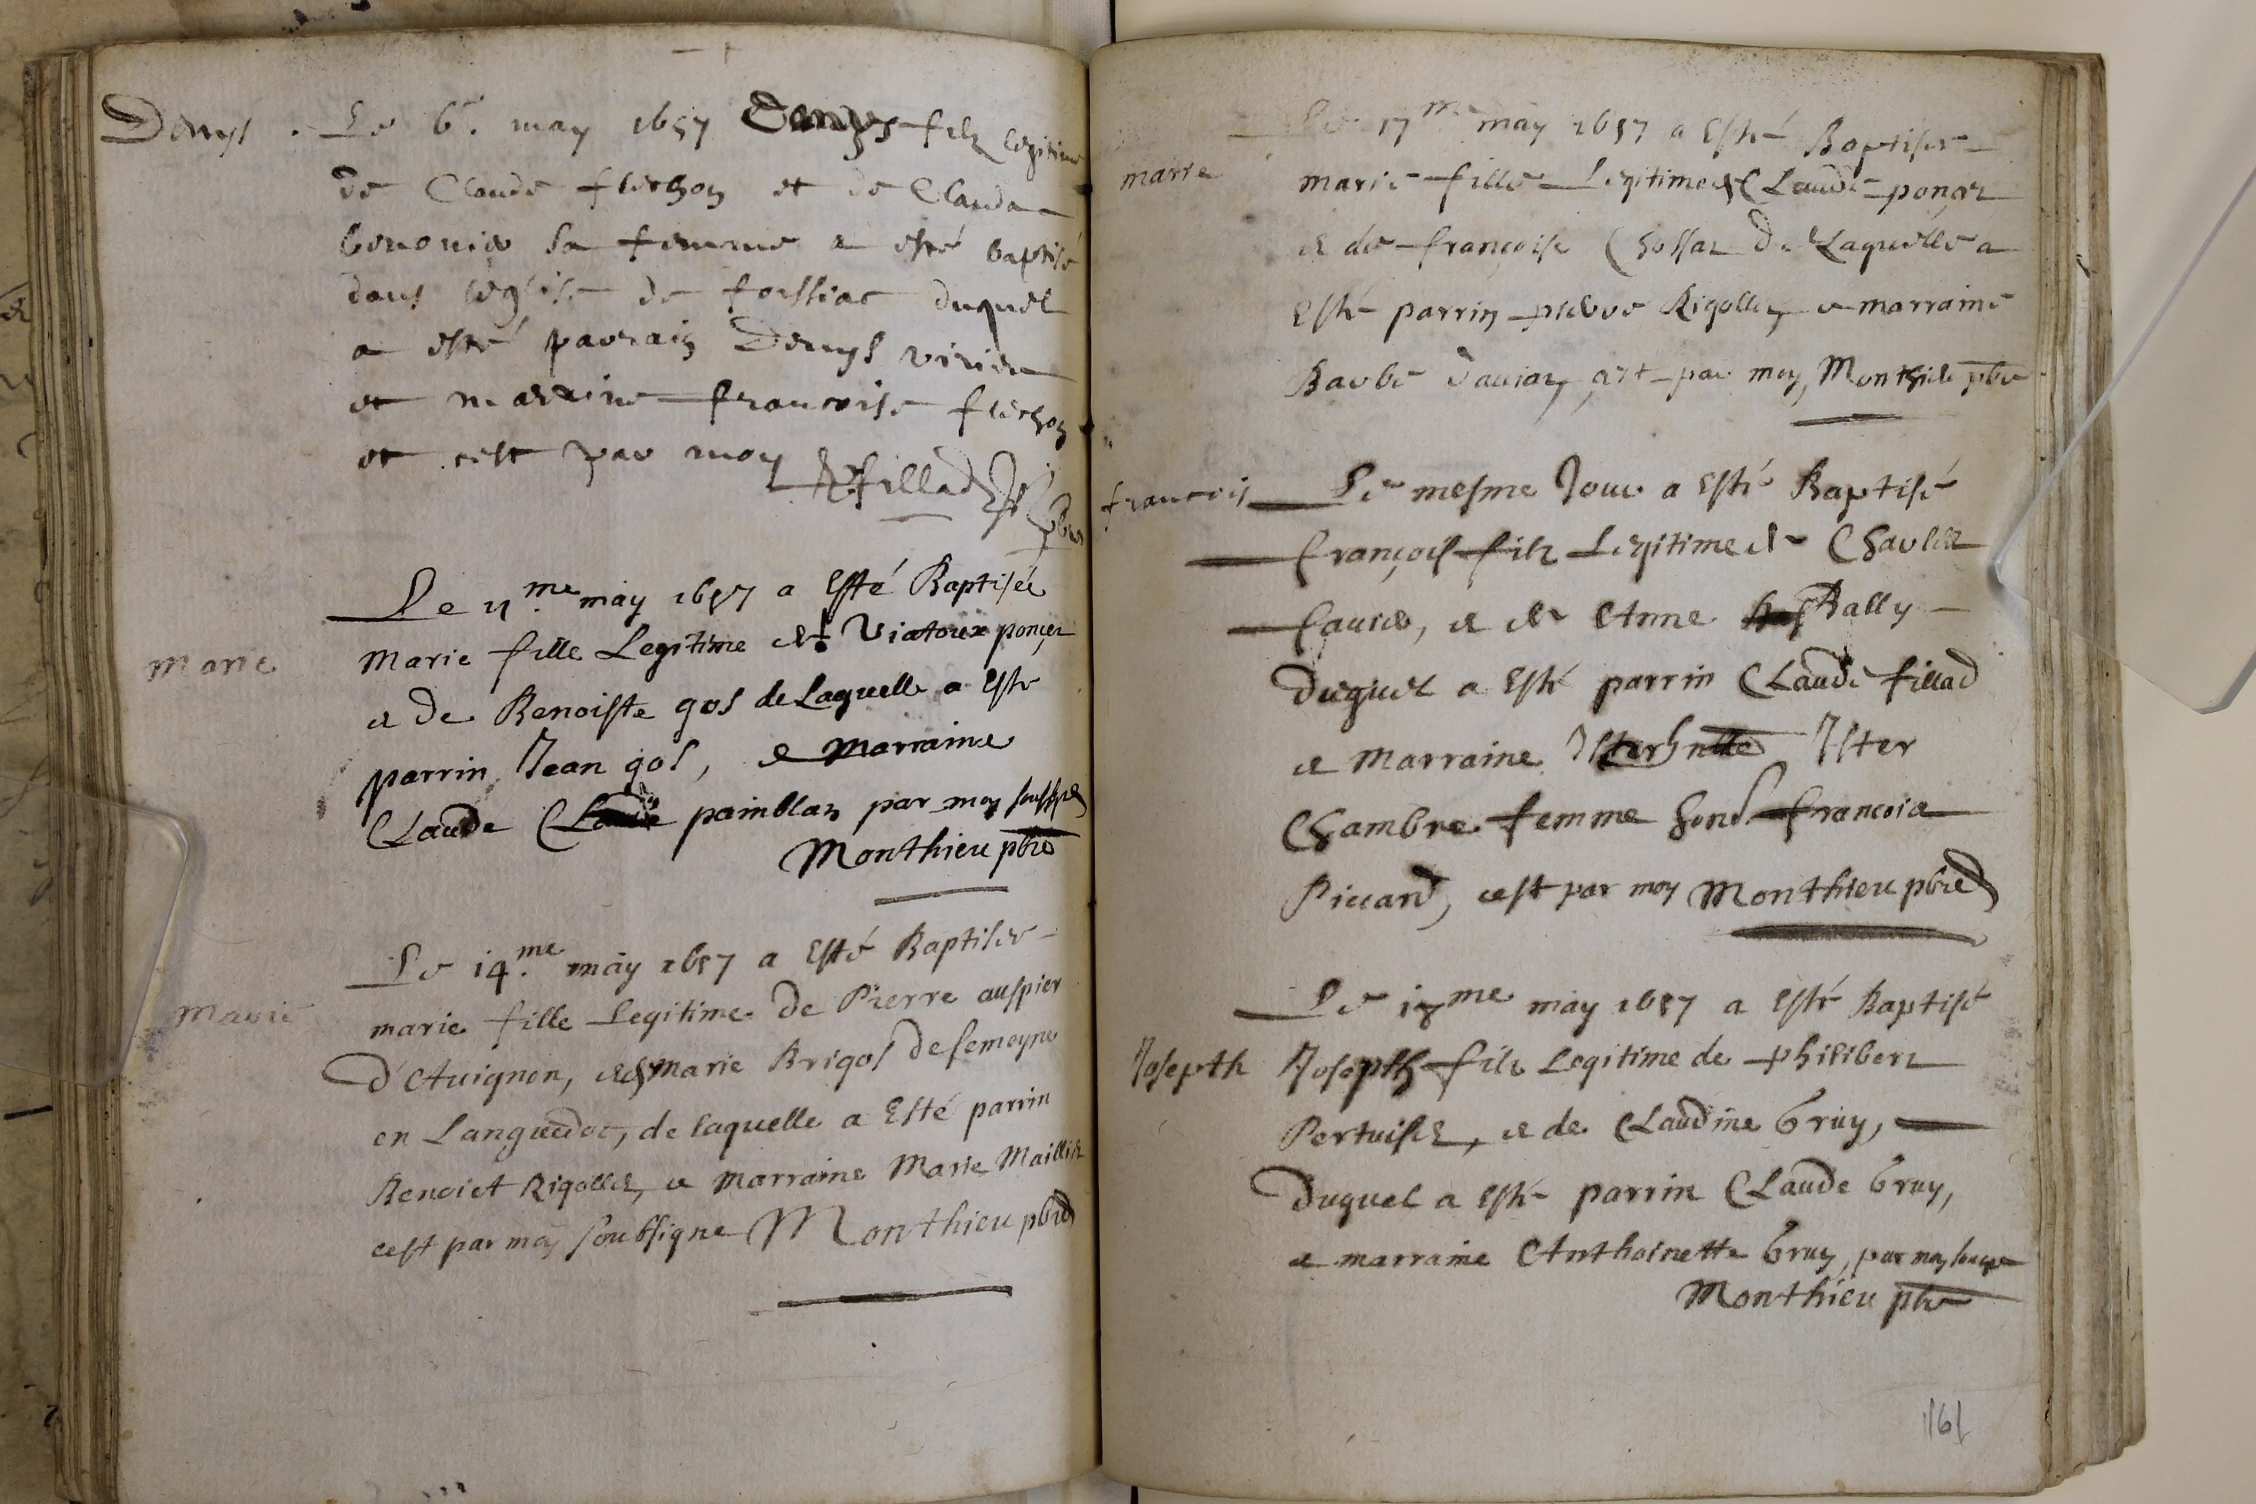 Denys
Le 6e. may 1657 Denys filz legitime
de Claude flechon et de Clauda
benonier sa femme a esté baptisé
dans leglise de foissiac duquel
a esté parrain Denys
et marrine francoise flechon
et cest par moy Fillad pbre
Marie
Le 11.me may 1657 a Esté Baptisée
Marie fille Legitime de Viatoux ponçet
et de Benoiste gos de Laquelle a Esté
parrin Jean gos, et Marraine
Claude painblan par moy soussigé
Monthieu pbre
Marie
Le 14.me may 1657 a Esté Baptisée
marie fille Legitime de Pierre auspier
d'Avignon, et de Marie Brigos de semeyne
en Languedoc, de laquelle a Esté parrin
Benoict Rigollet, et Marraine Marie Maillet
cest par moy soubsigne Monthieu pbre
marie
Le 17me may 1657 a Esté Baptisée
marie fille Legitime de Claude ponçet
et de françoise Chossat de Laquelle a
Esté parrin pierre Rigollet et marraine
Barbe par moy, Monthieu pbre
francois
Le mesme Jour a Esté Baptisé
françois filz Legitime de Charles
faurer, et de Anne Bally
Duquel a Esté parrin Claude fillad
et Marraine Ister
Chambre femme hono. francois
Piccard, cest par moy Monthieu pbre
Josepth
Le 17me may 1657 a Esté Baptisé
Josepth filz Legitime de philibert
Pertuiset, et de Claudine Gruy,
Duquel a Esté parrin Claude Gruy,
et marraine Anthoinette Gruy, par moy soussigé
Monthieu pbre
161